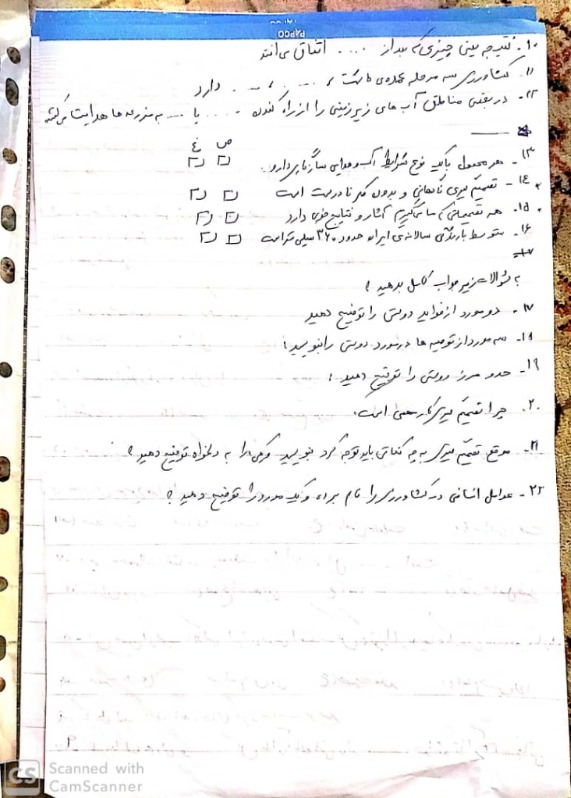 PAPCO
۱۰. نتیجه یعنی چیزی که بعد از .... اتفاق می افتد
۱۱. کشاورزی سه مرحله عمده ی کاشت، ....، .... دارد
۱۲- در بعضی مناطق آب های زیرزمینی را از راه کندن .... یا .... به مزرعه ها هدایت می کنند
ص غ
۱۳- هر محصول با یک نوع شرایط آب و هوایی سازگاری دارد.
۱۴- تصمیم گیری ناگهانی و بدون فکر نادرست است
۱۵. همه تصمیماتی که ما می گیریم آثار و نتایج خوبی دارد
۱۶. متوسط بارندگی سالانه ی ایران حدود ۳۶۰ میلی متر است
به سؤالات زیر جواب کامل بدهید؟
۱۷- دو مورد از فواید دوستی را توضیح دهید
۱۸- سه مورد از توصیه ها در مورد دوستی را بنویسید؛
۱۹- حد و مرز دوستی را توضیح دهید؛
۲۰. چرا تصمیم گیری کار مهمی است.
۲۱- موقع تصمیم گیری به چه نکاتی باید توجه کرد بنویسید و یکی را به دلخواه توضیح دهید؟
۲۲- عوامل انسانی در کشاورزی را نام ببرید و یک مورد را توضیح دهید؟
CS Scanned with
CamScanner